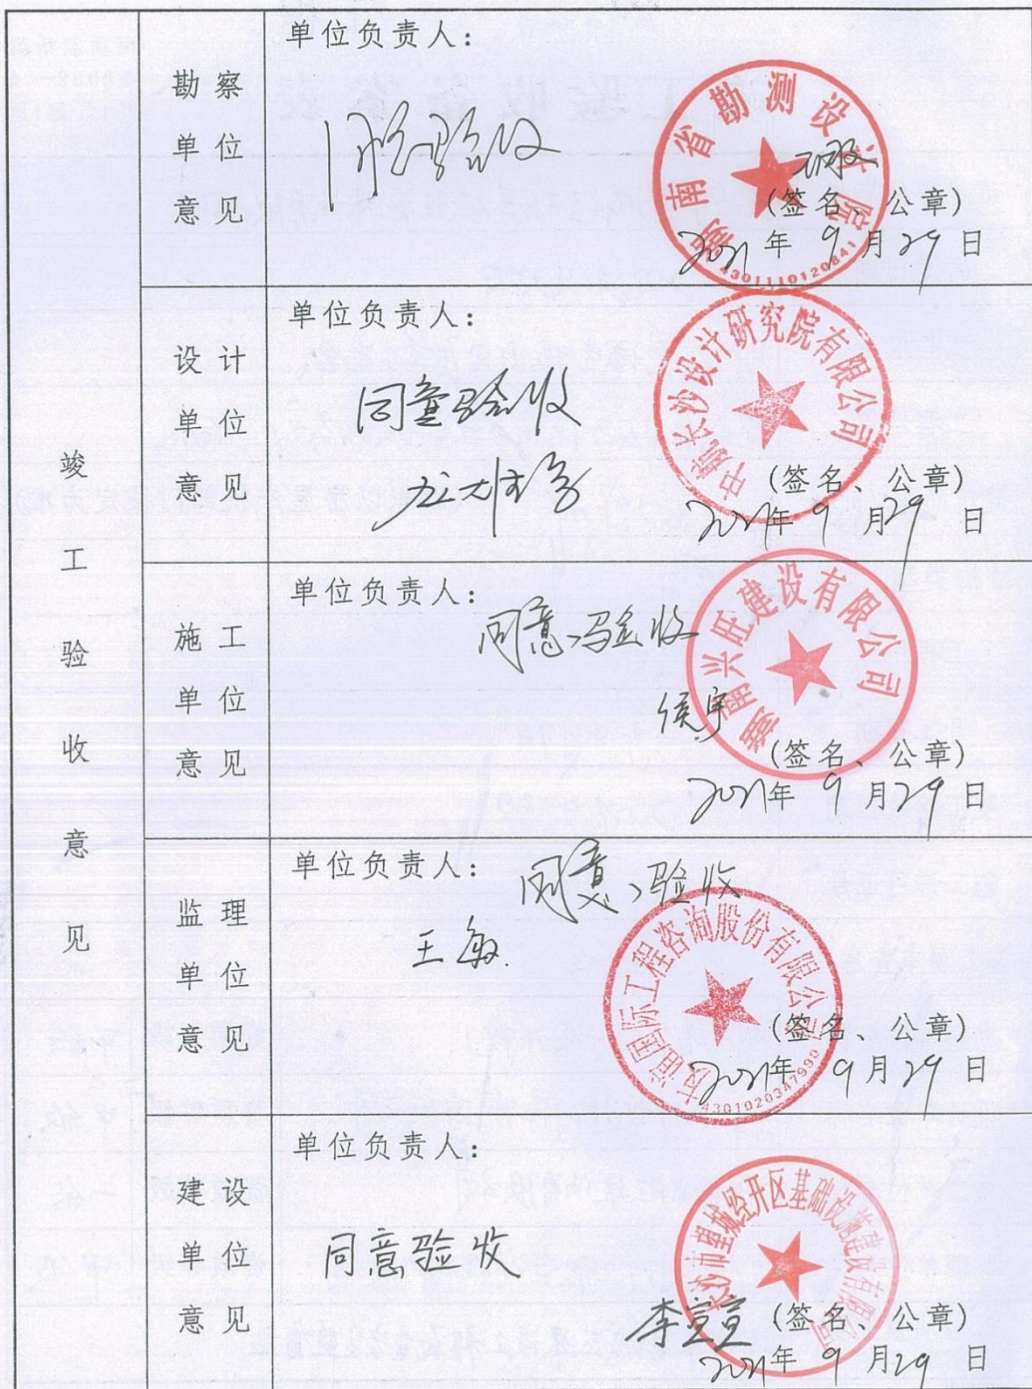 竣工验收意见
勘察单位意见
单位负责人：
同意验收
湖南省勘测设计院
4301110120841
(签名、公章)
2021年9月29日
设计单位意见
单位负责人：
同意验收
中赢长沙设计研究院有限公司
(签名、公章)
2021年9月29日
施工单位意见
单位负责人：
同意验收
湖南兴旺建设有限公司
侯宇
(签名、公章)
2021年9月29日
监理单位意见
单位负责人：
同意验收
王敏
友谊国际工程咨询股份有限公司
4301020347990
(签名、公章)
2021年9月29日
建设单位意见
单位负责人：
同意验收
长沙市望城经开区基础设施建设有限公司
李宣
(签名、公章)
2021年9月29日